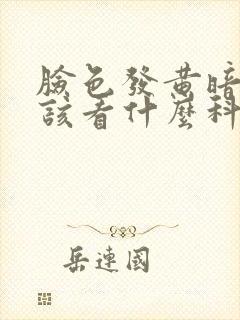 臉色發黄暗
該看什麼科
岳連國